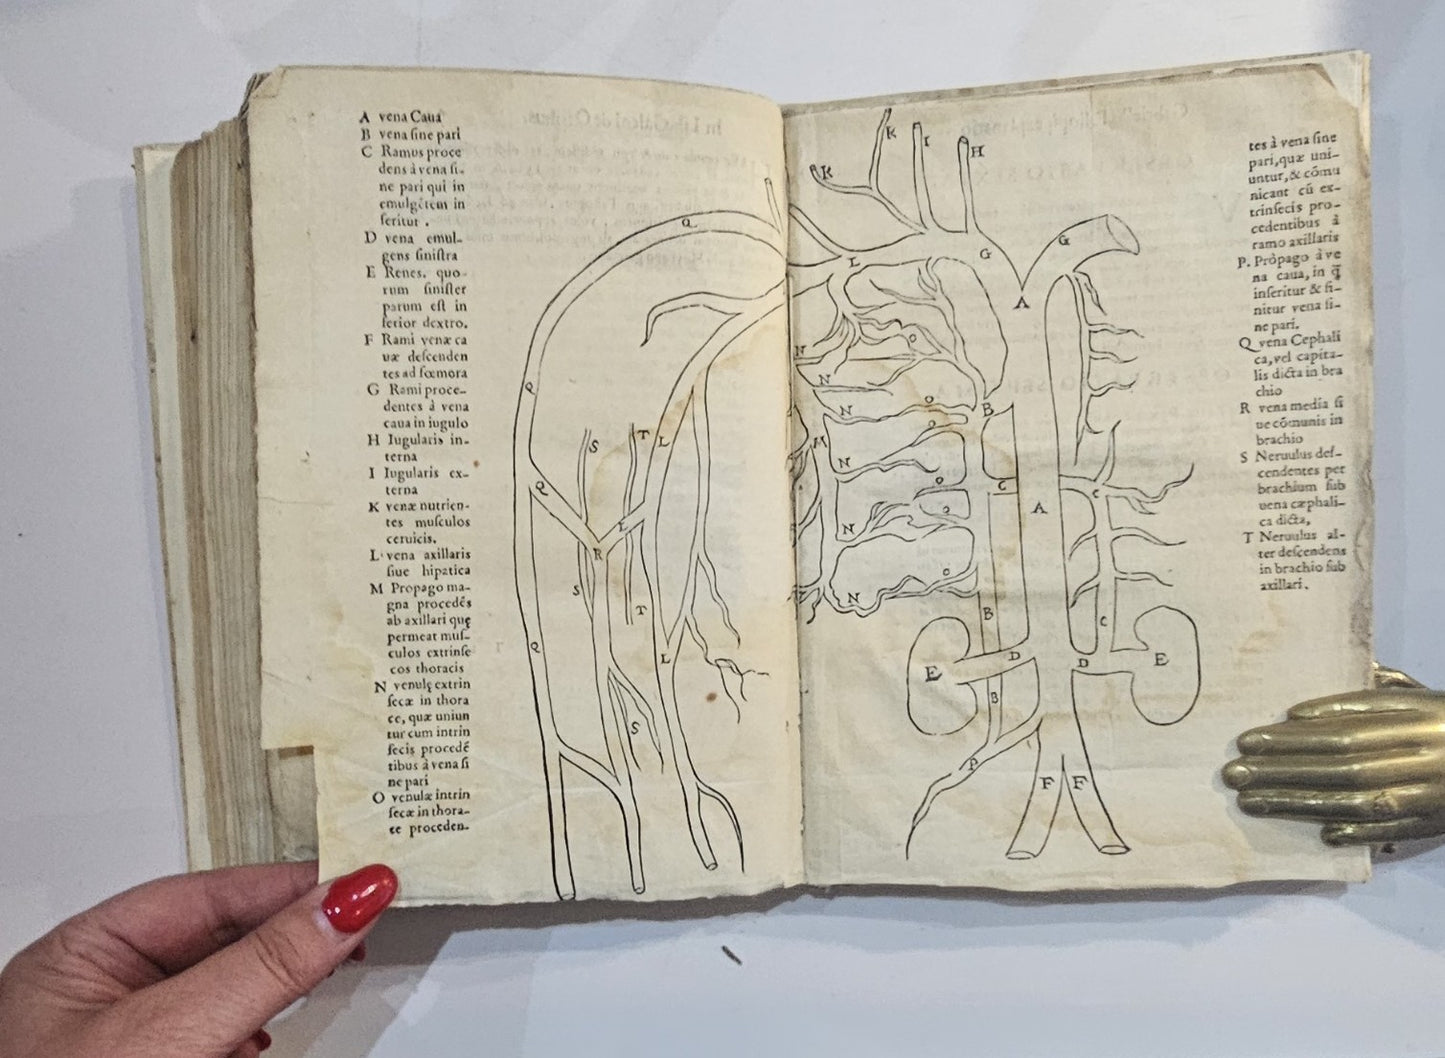 A vena Caua
B vena sine pari
C Ramus proce
dens à vena si-
ne pari qui in
emulgētem in
seritur .
D vena emul-
gens sinistra
E Renes. quo-
rum sinister
parum est in
ferior dextro.
F Rami venæ ca
uæ descenden
tes ad fœmora
G Rami proce-
dentes à vena
caua in iugulo
H Iugularis in-
terna
I Iugularis ex-
terna
K venæ nutrien-
tes musculos
ceruicis.
L vena axillaris
siue hipatica
M Propago ma-
gna procedēs
ab axillari quę
permeat mus-
culos extrinse
cos thoracis
N venulę extrin
secæ in thora
ce, quæ uniun
tur cum intrin
secis procedē
tibus à vena si
ne pari
O venulæ intrin
secæ in thora-
ce proceden-
tes à vena sine
pari, quæ uni-
untur, & cōmu
nicant cū ex-
trinsecis pro-
cedentibus à
ramo axillaris
P. Propago à ve
na caua, in q̄
inseritur & fi-
nitur vena si-
ne pari.
Q vena Cephali
ca, vel capita-
lis dicta in bra
chio
R vena media si
ue cōmunis in
brachio
S Neruulus des-
cendentes per
brachium sub
uena cæphali-
ca dicta,
T Neruulus al-
ter descendens
in brachio sub
axillari.
K
I
H
K
Q
G
G
L
A
O
N
N
Q
O
B
N
O
S
T
L
M
N
C
O
C
Q
A
O
L
N
R
S
O
N
T
B
C
Q
L
D
D
E
E
B
S
P
F
F